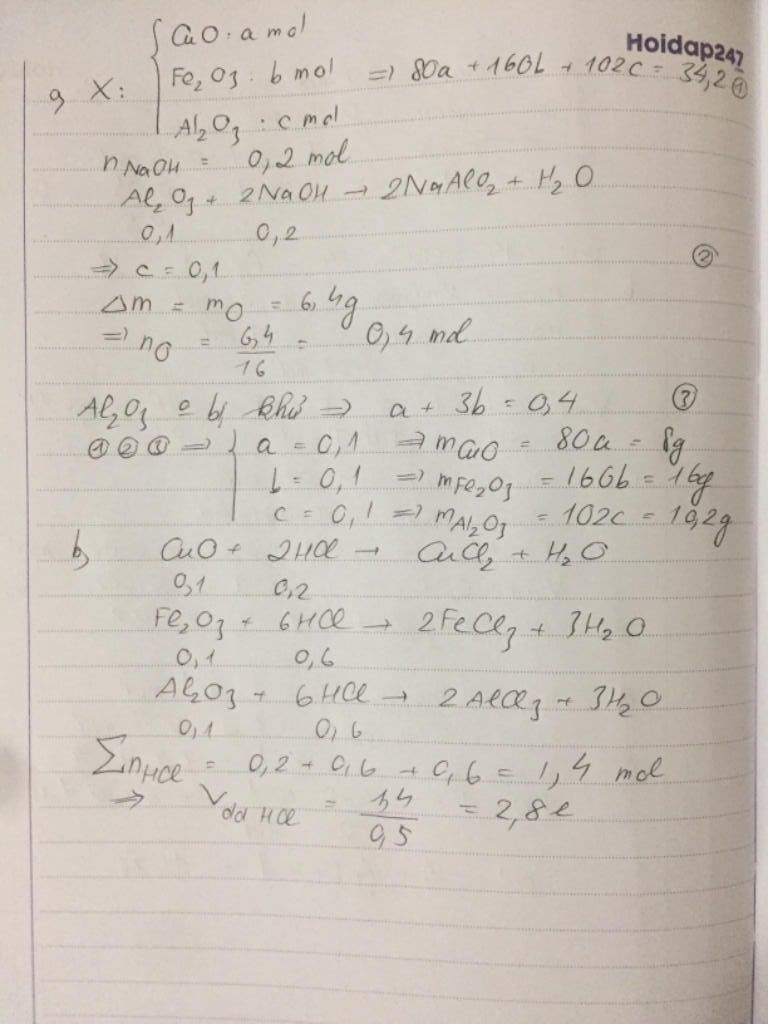 Hoidap247
a) X: { CuO : a mol
Fe₂O₃ : b mol ⇒ 80a + 160b + 102c = 34,2 ①
Al₂O₃ : c mol
nNaOH = 0,2 mol
Al₂O₃ + 2NaOH → 2NaAlO₂ + H₂O
0,1 0,2
⇒ c = 0,1 ②
Δm = mO = 6,4g
⇒ nO = 6,4/16 = 0,4 mol
Al₂O₃ o bị khử ⇒ a + 3b = 0,4 ③
①②③ ⇒ { a = 0,1 ⇒ mCuO = 80a = 8g
b = 0,1 ⇒ mFe₂O₃ = 160b = 16g
c = 0,1 ⇒ mAl₂O₃ = 102c = 10,2g
b) CuO + 2HCl → CuCl₂ + H₂O
0,1 0,2
Fe₂O₃ + 6HCl → 2FeCl₃ + 3H₂O
0,1 0,6
Al₂O₃ + 6HCl → 2AlCl₃ + 3H₂O
0,1 0,6
∑nHCl = 0,2 + 0,6 + 0,6 = 1,4 mol
⇒ Vdd HCl = 1,4/0,5 = 2,8l